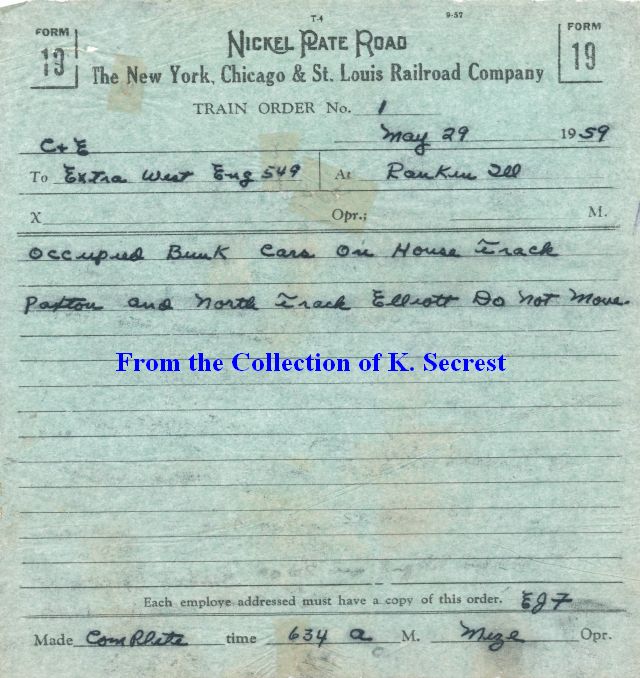 T-4 9-57
FORM 19 NICKEL PLATE ROAD FORM 19
The New York, Chicago & St. Louis Railroad Company
TRAIN ORDER No. 1
May 29 1959
C+E
To Extra West Eng 549 At Rankin Ill
X Opr.; M.
Occupied Bunk Cars On House Track
Paxton and North Track Elliott Do Not Move.
From the Collection of K. Secrest
Each employe addressed must have a copy of this order. EJF
Made Complete time 634 a M. Mize Opr.